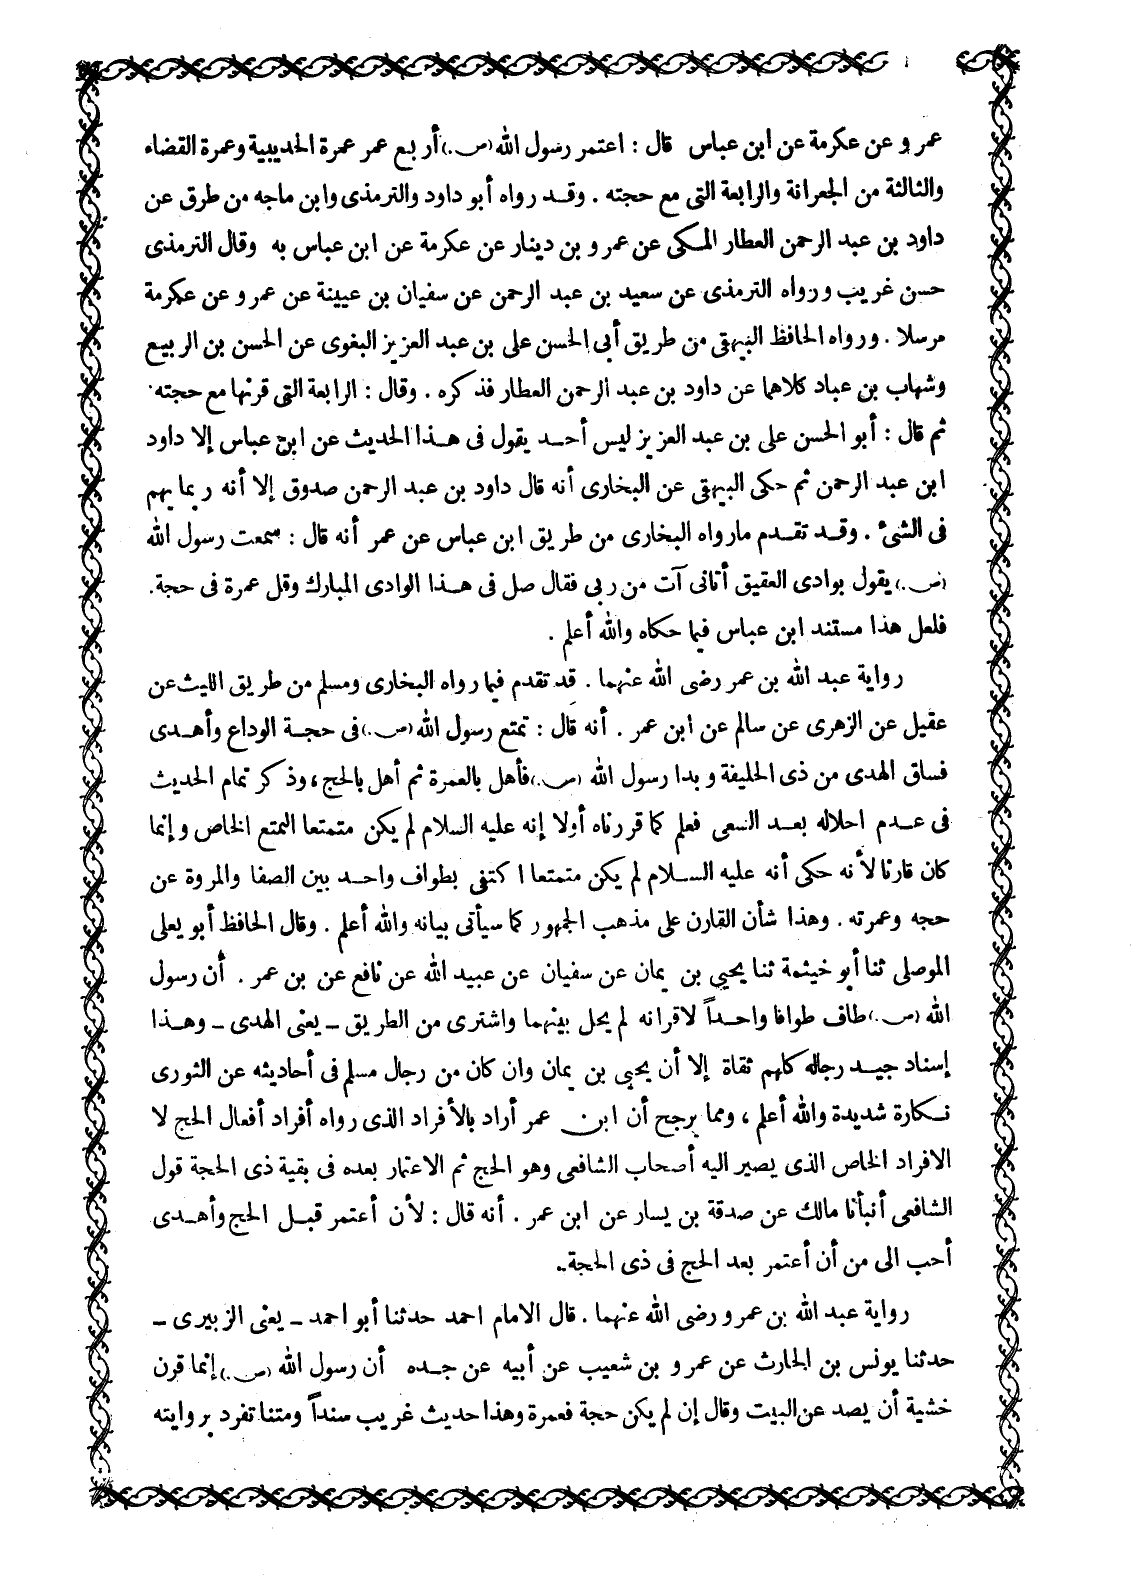 عمرو عن عكرمة عن ابن عباس قال : اعتمر رسول الله (ص.) أربع عمر عمرة الحديبية وعمرة القضاء
والثالثة من الجعرانة والرابعة التى مع حجته . وقد رواه أبو داود والترمذى وابن ماجه من طرق عن
داود بن عبد الرحمن العطار المكى عن عمرو بن دينار عن عكرمة عن ابن عباس به وقال الترمذى
حسن غريب ورواه الترمذى عن سعيد بن عبد الرحمن عن سفيان بن عيينة عن عمرو عن عكرمة
مرسلا . ورواه الحافظ البيهقى من طريق أبى الحسن على بن عبد العزيز البغوى عن الحسن بن الربيع
وشهاب بن عباد كلاهما عن داود بن عبد الرحمن العطار فذكره . وقال : الرابعة التى قرنها مع حجته
ثم قال : أبو الحسن على بن عبد العزيز ليس أحد يقول فى هذا الحديث عن ابن عباس إلا داود
ابن عبد الرحمن ثم حكى البيهقى عن البخارى أنه قال داود بن عبد الرحمن صدوق إلا أنه ربما يهم
فى الشئ . وقد تقدم مارواه البخارى من طريق ابن عباس عن عمر أنه قال : سمعت رسول الله
(ص.) يقول بوادى العقيق أتانى آت من ربى فقال صل فى هذا الوادى المبارك وقل عمرة فى حجة.
فلعل هذا مستند ابن عباس فيما حكاه والله أعلم .
رواية عبد الله بن عمر رضى الله عنهما . قد تقدم فيما رواه البخارى ومسلم من طريق الليث عن
عقيل عن الزهرى عن سالم عن ابن عمر . أنه قال : تمتع رسول الله (ص.) فى حجة الوداع وأهدى
فساق الهدى من ذى الحليفة وبدا رسول الله (ص.) فأهل بالعمرة ثم أهل بالحج ، وذكر تمام الحديث
فى عدم احلاله بعد السعى فعلم كما قررناه أولا إنه عليه السلام لم يكن متمتعا التمتع الخاص وإنما
كان قارنا لأنه حكى أنه عليه السلام لم يكن متمتعا اكتفى بطواف واحد بين الصفا والمروة عن
حجه وعمرته . وهذا شأن القارن على مذهب الجمهور كما سيأتى بيانه والله أعلم . وقال الحافظ أبو يعلى
الموصلى ثنا أبو خيثمة ثنا يحيى بن يمان عن سفيان عن عبيد الله عن نافع عن بن عمر . أن رسول
الله (ص.) طاف طوافا واحداً لاقرانه لم يحل بينهما واشترى من الطريق ــ يعنى الهدى ــ وهذا
إسناد جيد رجاله كلهم ثقاة إلا أن يحيى بن يمان وان كان من رجال مسلم فى أحاديثه عن الثورى
نكارة شديدة والله أعلم ، ومما يرجح أن ابن عمر أراد بالأفراد الذى رواه أفراد أفعال الحج لا
الافراد الخاص الذى يصير اليه أصحاب الشافعى وهو الحج ثم الاعتمار بعده فى بقية ذى الحجة قول
الشافعى أنبأنا مالك عن صدقة بن يسار عن ابن عمر . أنه قال : لأن أعتمر قبل الحج وأهدى
أحب الى من أن أعتمر بعد الحج فى ذى الحجة.
رواية عبد الله بن عمرو رضى الله عنهما . قال الامام احمد حدثنا أبو احمد ــ يعنى الزبيرى ــ
حدثنا يونس بن الحارث عن عمرو بن شعيب عن أبيه عن جده أن رسول الله (ص.) إنما قرن
خشية أن يصد عن البيت وقال إن لم يكن حجة فعمرة وهذا حديث غريب سنداً ومتنا تفرد بروايته